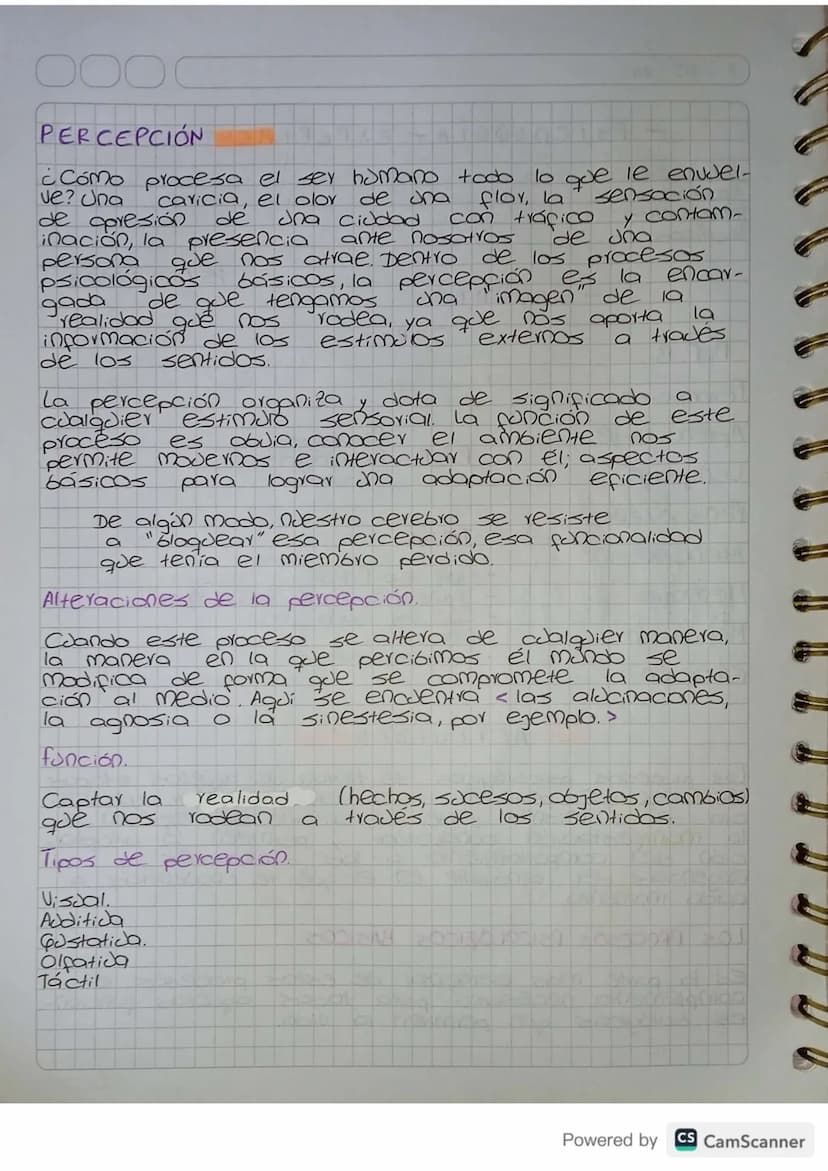 PERCEPCIÓN
¿Cómo procesa el ser humano todo lo que le envuel-
ve? Una caricia, el olor de una flor, la sensación
de opresión de una ciudad con tráfico y contam-
inación, la presencia ante nosotros de una
persona que nos atrae. Dentro de los procesos
psicológicos básicos, la percepción es la encar-
gada de que tengamos una "imagen" de la
realidad que nos rodea, ya que nos aporta la
información de los estímulos externos a través
de los sentidos.
La percepción organiza y dota de significado a
cualquier estímulo sensorial. La función de este
proceso es obvia, conocer el ambiente nos
permite movernos e interactuar con él; aspectos
básicos para lograr una adaptación eficiente.
De algún modo, nuestro cerebro se resiste
a "bloquear" esa percepción, esa funcionalidad
que tenía el miembro perdido.
Alteraciones de la percepción.
Cuando este proceso se altera de cualquier manera,
la manera en la que percibimos el mundo se
modifica de forma que se compromete la adapta-
ción al medio. Aquí se encuentra < las alucinacones,
la agnosia o la sinestesia, por ejemplo. >
función.
Captar la realidad (hechos, sucesos, objetos, cambios)
que nos rodean a través de los sentidos.
Tipos de percepción.
Visual.
Auditiva
Gustativa.
Olfativa
Táctil
Powered by CS CamScanner